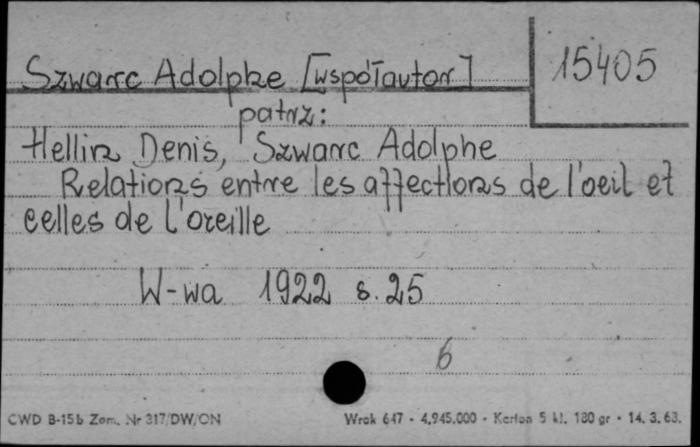 Szwarc Adolphe [współautor]
15405
patrz:
Hellin Denis, Szwarc Adolphe
Relations entre les affections de l'oeil et
celles de l'oreille
W-wa 1922 s. 25
6
CWD B-15b Zam. Nr 317/DW/ON
Wrak 647 - 4.945.000 - Karton 5 kl. 180 gr - 14. 3. 63.